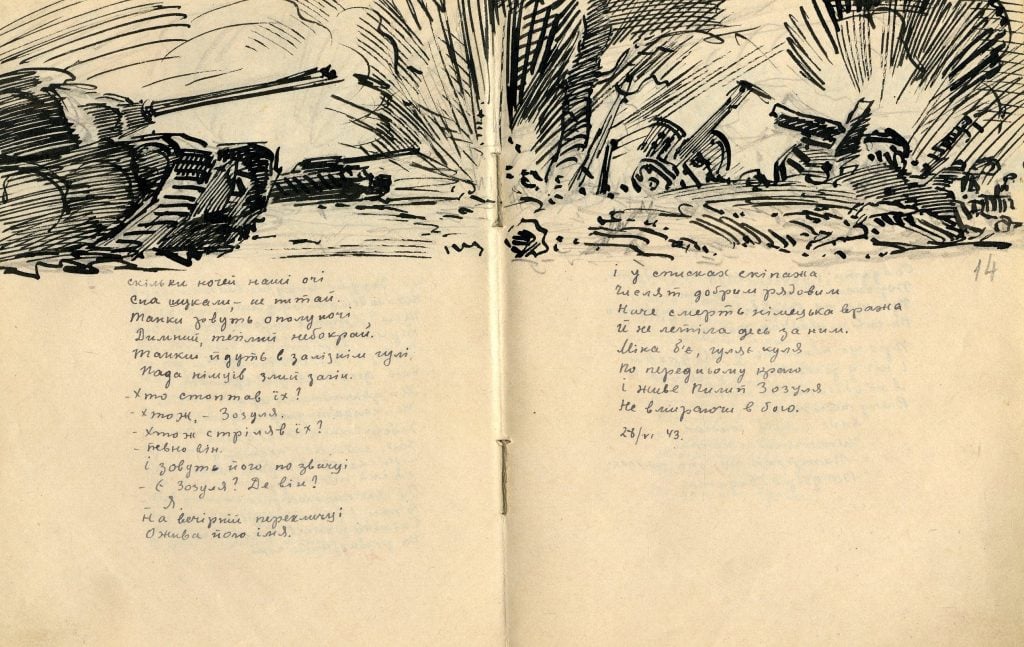 скільки ночей наші очі
Сна шукали, – не питай.
Танки рвуть ополуночі
Димний, теплий небокрай.
Танки йдуть в залізнім гулі
Пада німців злий загін.
– Хто стоптав їх?
– Хтож, – Зозуля.
– Хтож стріляв їх?
– Певно він.
і зовуть його по звичці
– Є Зозуля? Де він?
– Я.
На вечірній перекличці
Ожива його імя.
14
і у списках екіпажа
Числят добрим рядовим
Наче смерть німецька вража
Й не летіла десь за ним.
Міна б'є, гуляє куля
По передньому краю
і живе Пилип Зозуля
Не вмираючи в бою.
28/VI 43.